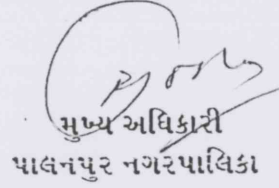 મુખ્ય અધિકારી
પાલનપુર નગરપાલિકા